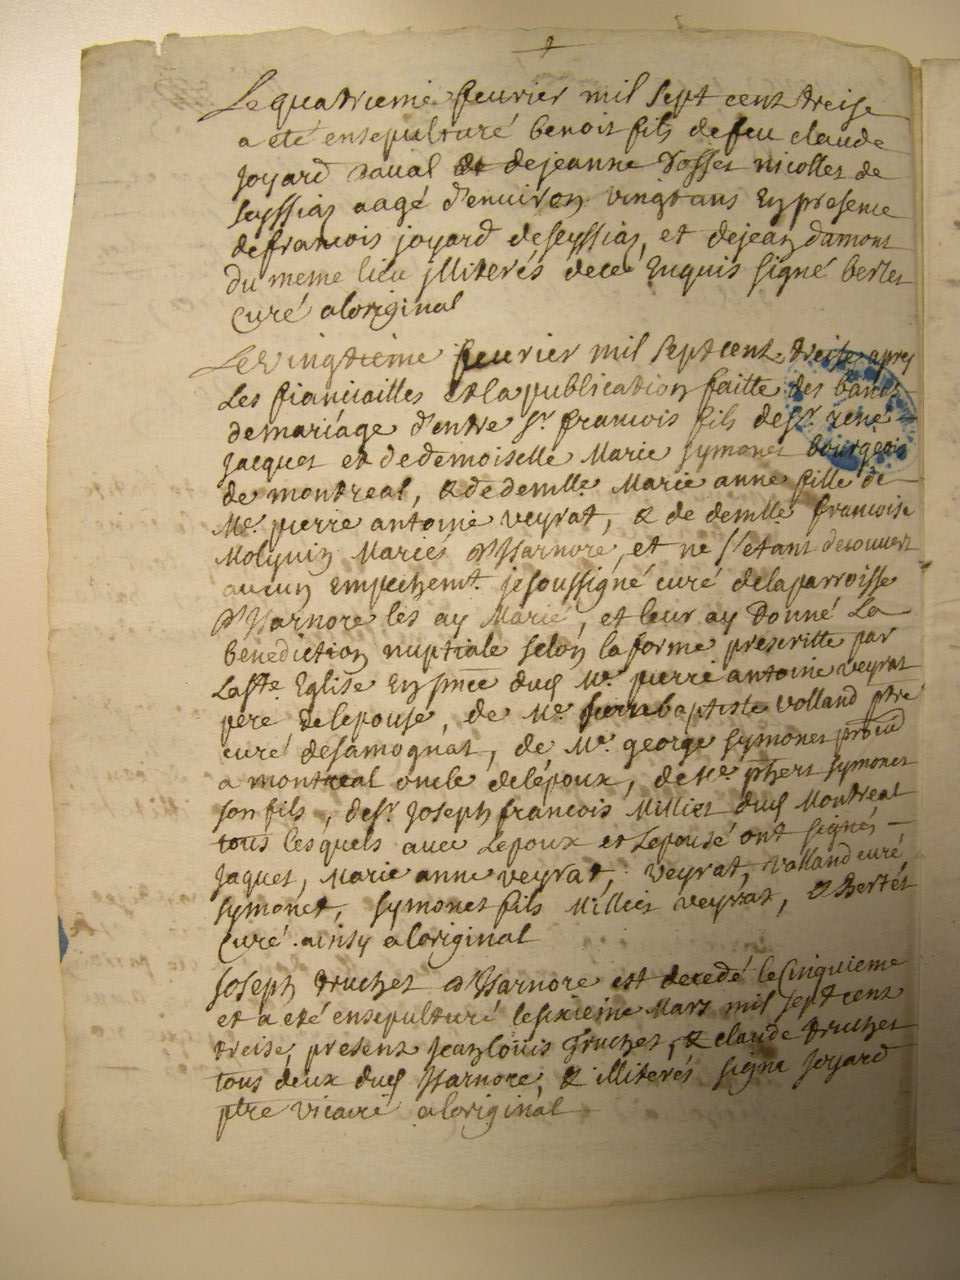 Le quatrieme feurier mil sept cent treise
a eté ensepulturé benoit fils de feu claude
joyard daual de jeanne dosset nicollet de
seyssias aagé d'enuiron vingt ans en presence
de francois joyard de seyssias, et de jean damont
du meme lieu illiterés de ce enquis signé bertet
curé a loriginal
Le vingtieme feurier mil sept cent treise apres
Les fianciailles et la publication faitte des bancs
de mariage d'entre sr. francois fils de sr. rene
jacquet et de demoiselle Marie symonet bourgeois
de montreal, & de demlle. Marie anne fille de
Me. pierre antoine veyrat, & de demlle. francoise
Molynin Mariés d'Isarnore, et ne s'etant decouuert
aucun empechemt. je soussigné curé de la parroisse
d'Isarnore les ay Marié, et leur ay donné La
benediction nuptiale selon la forme prescritte par
La ste. Eglise en pnce dud Me. pierre antoine veyrat
pere de lepouse, de Me. baptiste volland ptre
curé de samognat, de Me. george symonet
a montreal oncle de lépoux, de Me. phert symonet
son fils, de sr. joseph francois Milliet dud Montreal
tous lesquels auec Lépoux et Lepousé ont signés
jaquet, Marie anne veyrat, veyrat, volland curé,
symonet, symonet fils Milliet veyrat, & Bertet
Curé ainsy a loriginal
Joseph truchet d'Isarnore est decedé le Cinquieme
et a eté ensepulturé le sixieme Mars mil sept cent
treise, present jean louis truchet, & claude truchet
tous deux dud Isarnore, & illiterés signé joyard
ptre vicaire a loriginal